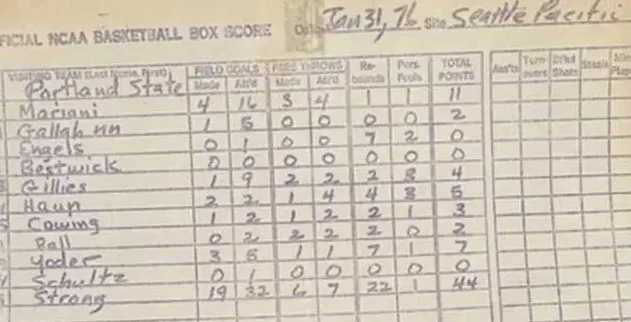 FICIAL NCAA BASKETBALL BOX SCORE Date Jan 31, 76 Site Seattle Pacific
VISITING TEAM (Last Name, First) FIELD GOALS FREE THROWS Re- Pers. TOTAL Ass'ts Turn- Bl'kd Steals Min
Portland State Made Att'd Made Att'd bounds Fouls POINTS overs Shots Play
Mariani 4 16 3 4 1 1 11
Gallah nn 1 5 0 0 0 0 2
Engels 0 1 0 0 7 2 0
Bestwick 0 0 0 0 0 0 0
Gillies 1 9 2 2 2 3 4
Haun 2 2 1 4 4 3 5
Cowing 1 2 1 2 2 1 3
Ball 0 2 2 2 2 0 2
Yoder 3 5 1 1 7 1 7
Schultz 0 1 0 0 0 0 0
Strong 19 32 6 7 22 1 44